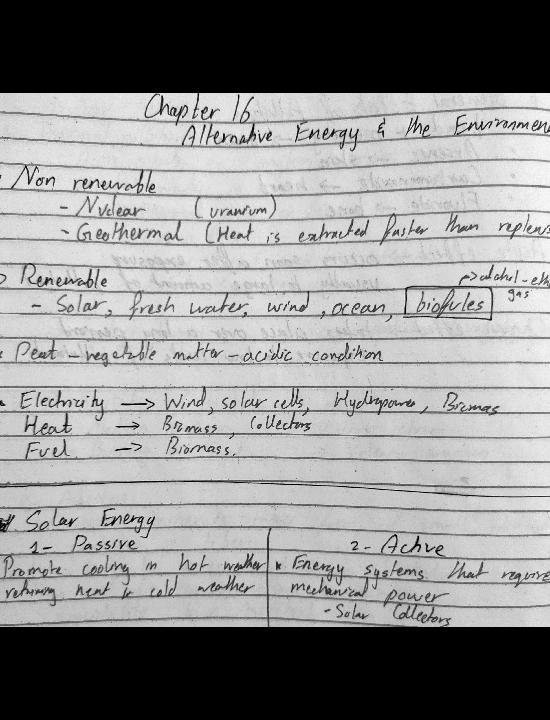 Chapter 16
Alternative Energy & the Environmen
Non renewable
- Nuclear (uranium)
- Geothermal (Heat is extracted faster than replens
Renewable
→ alchol - eth
gas
- Solar, fresh water, wind, ocean, biofules
Peat - vegetable matter - acidic condition
Electricity → Wind, solar cells, Hydropower, Biomas
Heat → Biomass, Collectors
Fuel → Biomass.
Solar Energy
1- Passive
2- Active
Promote cooling in hot weather
retuning heat in cold weather
* Energy systems that require
mechanical power
- Solar Collectors